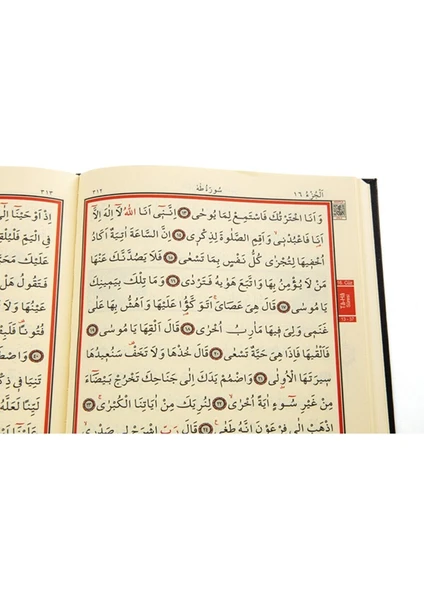 اَلْجُزْءُ ١٦
سُورَةُ طٰهٰ
٣١٢
وَاَنَا اخْتَرْتُكَ فَاسْتَمِعْ لِمَا يُوحٰى ﴿١٣﴾ اِنَّنٖٓي اَنَا اللّٰهُ لَٓا اِلٰهَ اِلَّٓا
اَنَا۬ فَاعْبُدْنٖيۙ وَاَقِمِ الصَّلٰوةَ لِذِكْرٖي ﴿١٤﴾ اِنَّ السَّاعَةَ اٰتِيَةٌ اَكَادُ
اُخْفٖيهَا لِتُجْزٰى كُلُّ نَفْسٍ بِمَا تَسْعٰى ﴿١٥﴾ فَلَا يَصُدَّنَّكَ عَنْهَا
مَنْ لَا يُؤْمِنُ بِهَا وَاتَّبَعَ هَوٰيهُ فَتَرْدٰى ﴿١٦﴾ وَمَا تِلْكَ بِيَمٖينِكَ
يَا مُوسٰى ﴿١٧﴾ قَالَ هِيَ عَصَايَۚ اَتَوَكَّؤُ۬ا عَلَيْهَا وَاَهُشُّ بِهَا عَلٰى
غَنَمٖي وَلِيَ فٖيهَا مَاٰرِبُ اُخْرٰى ﴿١٨﴾ قَالَ اَلْقِهَا يَا مُوسٰى ﴿١٩﴾
فَاَلْقٰيهَا فَاِذَا هِيَ حَيَّةٌ تَسْعٰى ﴿٢٠﴾ قَالَ خُذْهَا وَلَا تَخَفْ۠ سَنُعٖيدُهَا
سٖيرَتَهَا الْاُو۫لٰى ﴿٢١﴾ وَاضْمُمْ يَدَكَ اِلٰى جَنَاحِكَ تَخْرُجْ بَيْضَٓاءَ
مِنْ غَيْرِ سُٓوءٍ اٰيَةً اُخْرٰىۙ ﴿٢٢﴾ لِنُرِيَكَ مِنْ اٰيَاتِنَا الْكُبْرٰىۚ ﴿٢٣﴾
اِذْهَبْ اِلٰى فِرْعَوْنَ اِنَّهُ طَغٰى۟ ﴿٢٤﴾ قَالَ رَبِّ اشْرَحْ لٖي صَدْرٖيۙ
٣١٣
اِذْ اَوْحَيْنَٓا اِلٰٓى
فِي الْيَمِّ فَلْيُلْقِهِ
عَلَيْكَ مَحَبَّةً
فَتَقُولُ هَلْ
عَيْنُهَا وَلَا
فُتُونًا۠ فَلَبِثْتَ
﴿٤٠﴾ وَاصْطَنَعْتُكَ
تَنِيَا فٖي ذِكْرٖي
لَيِّنًا لَعَلَّهُ